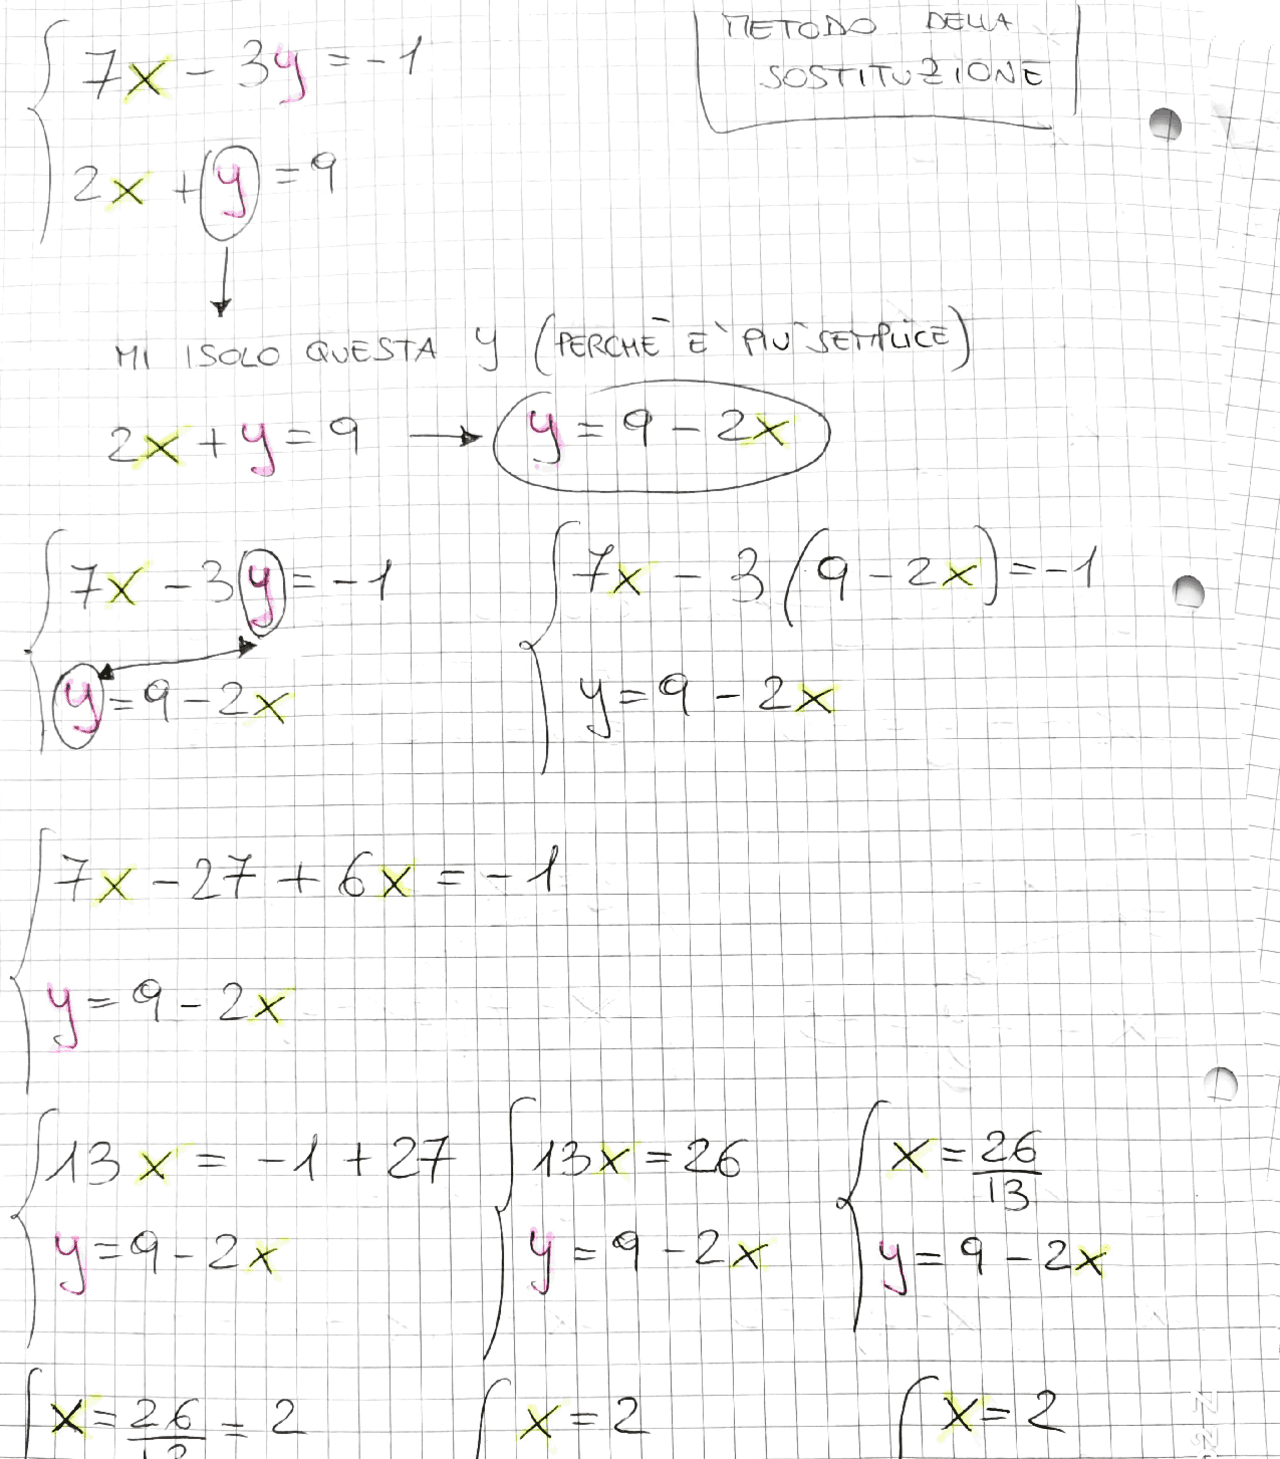 METODO DELLA
SOSTITUZIONE
7x - 3y = -1
2x + y = 9
MI ISOLO QUESTA y (PERCHÉ E' PIU' SEMPLICE)
2x + y = 9 → y = 9 - 2x
7x - 3y = -1
y = 9 - 2x
7x - 3(9 - 2x) = -1
y = 9 - 2x
7x - 27 + 6x = -1
y = 9 - 2x
13x = -1 + 27
y = 9 - 2x
13x = 26
y = 9 - 2x
x = 26/13
y = 9 - 2x
x = 26/13 = 2
x = 2
x = 2